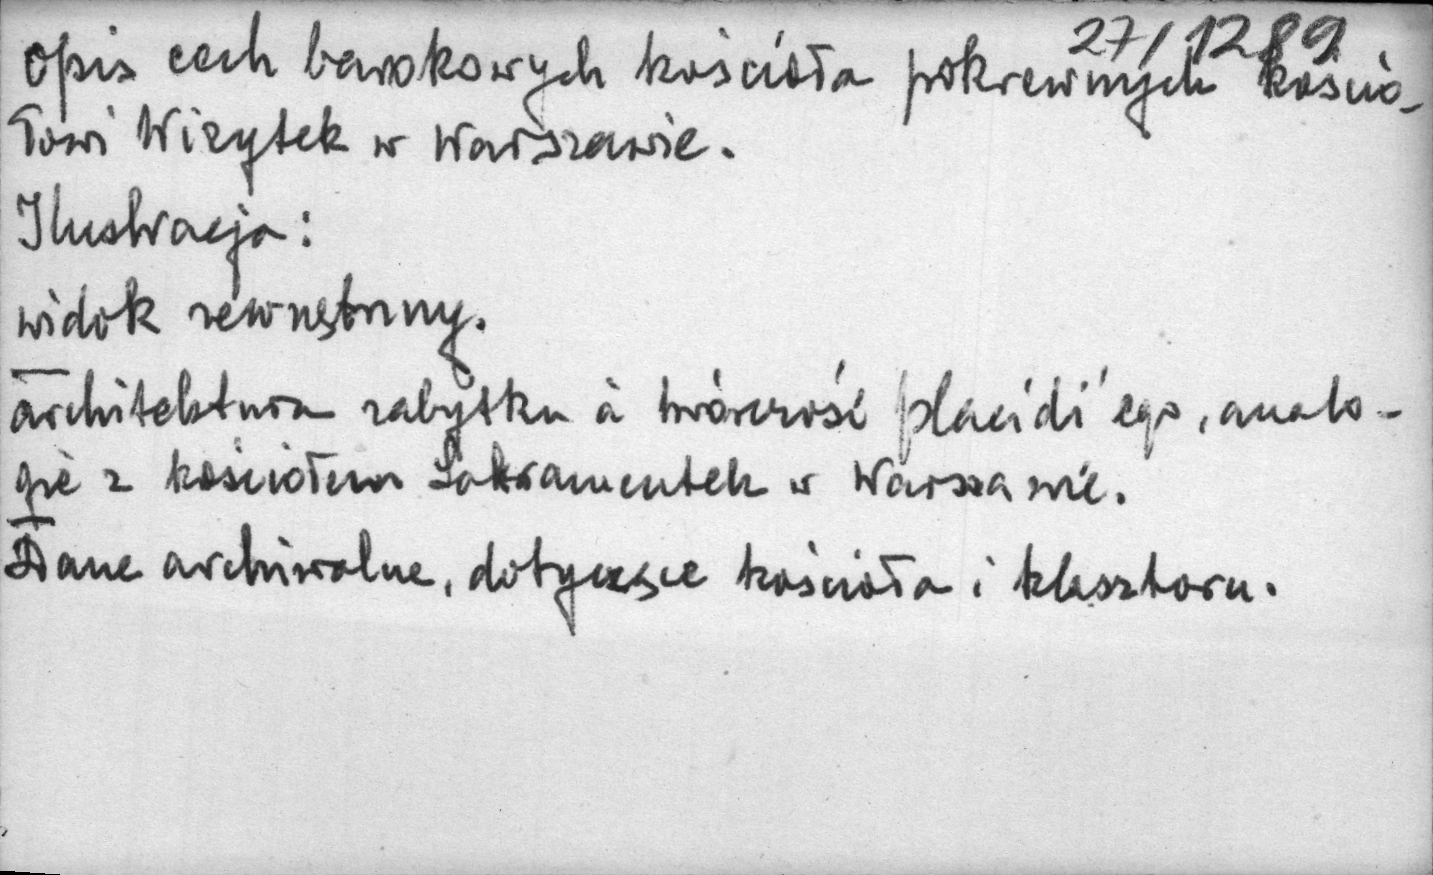 27/1289
opis cech barokowych kościoła pokrewnych kościo-
łowi Wizytek w Warszawie.
Ilustracja:
widok zewnętrzny.
architektura zabytku à twórczość placidi'ego, analo-
gie z kościołem Sakramentek w Warszawie.
Dane archiwalne, dotyczące kościoła i klasztoru.